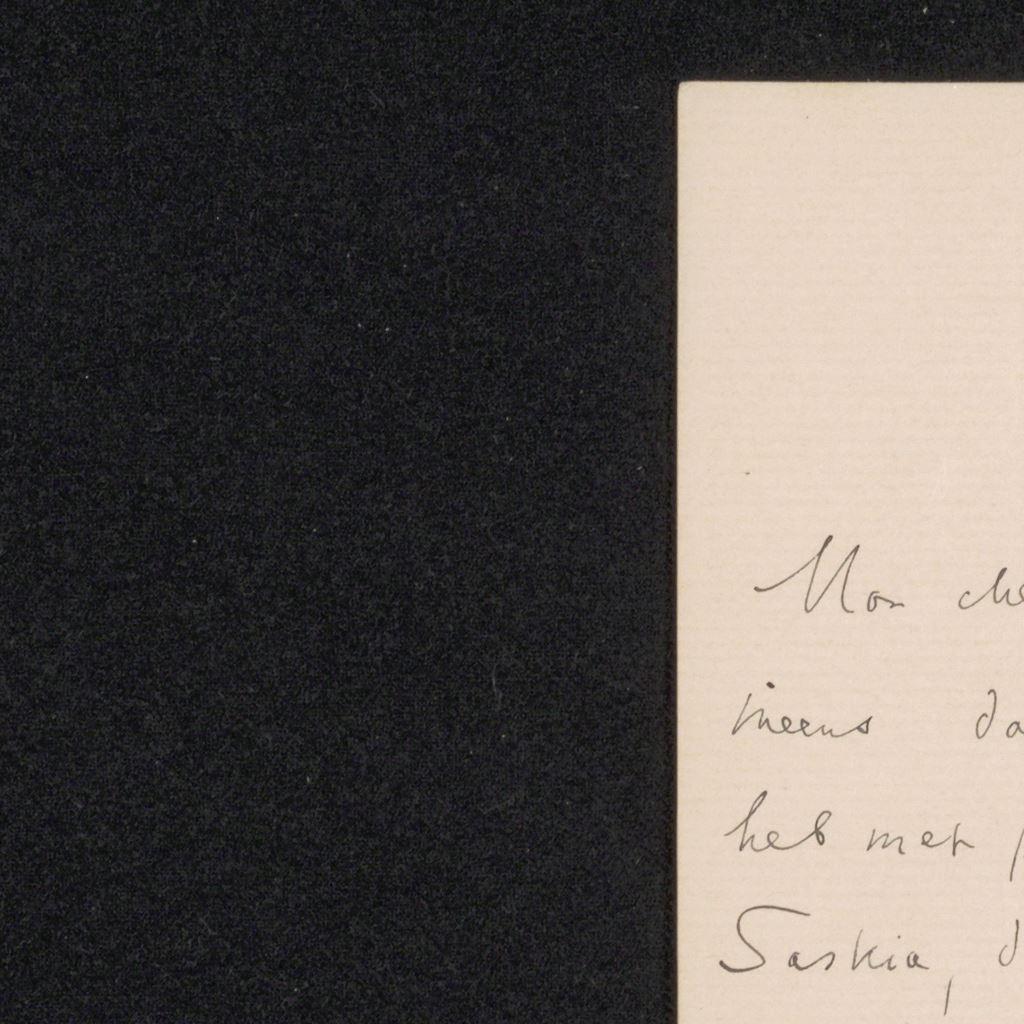 Mon che
ineens da
heb met
Saskia, d